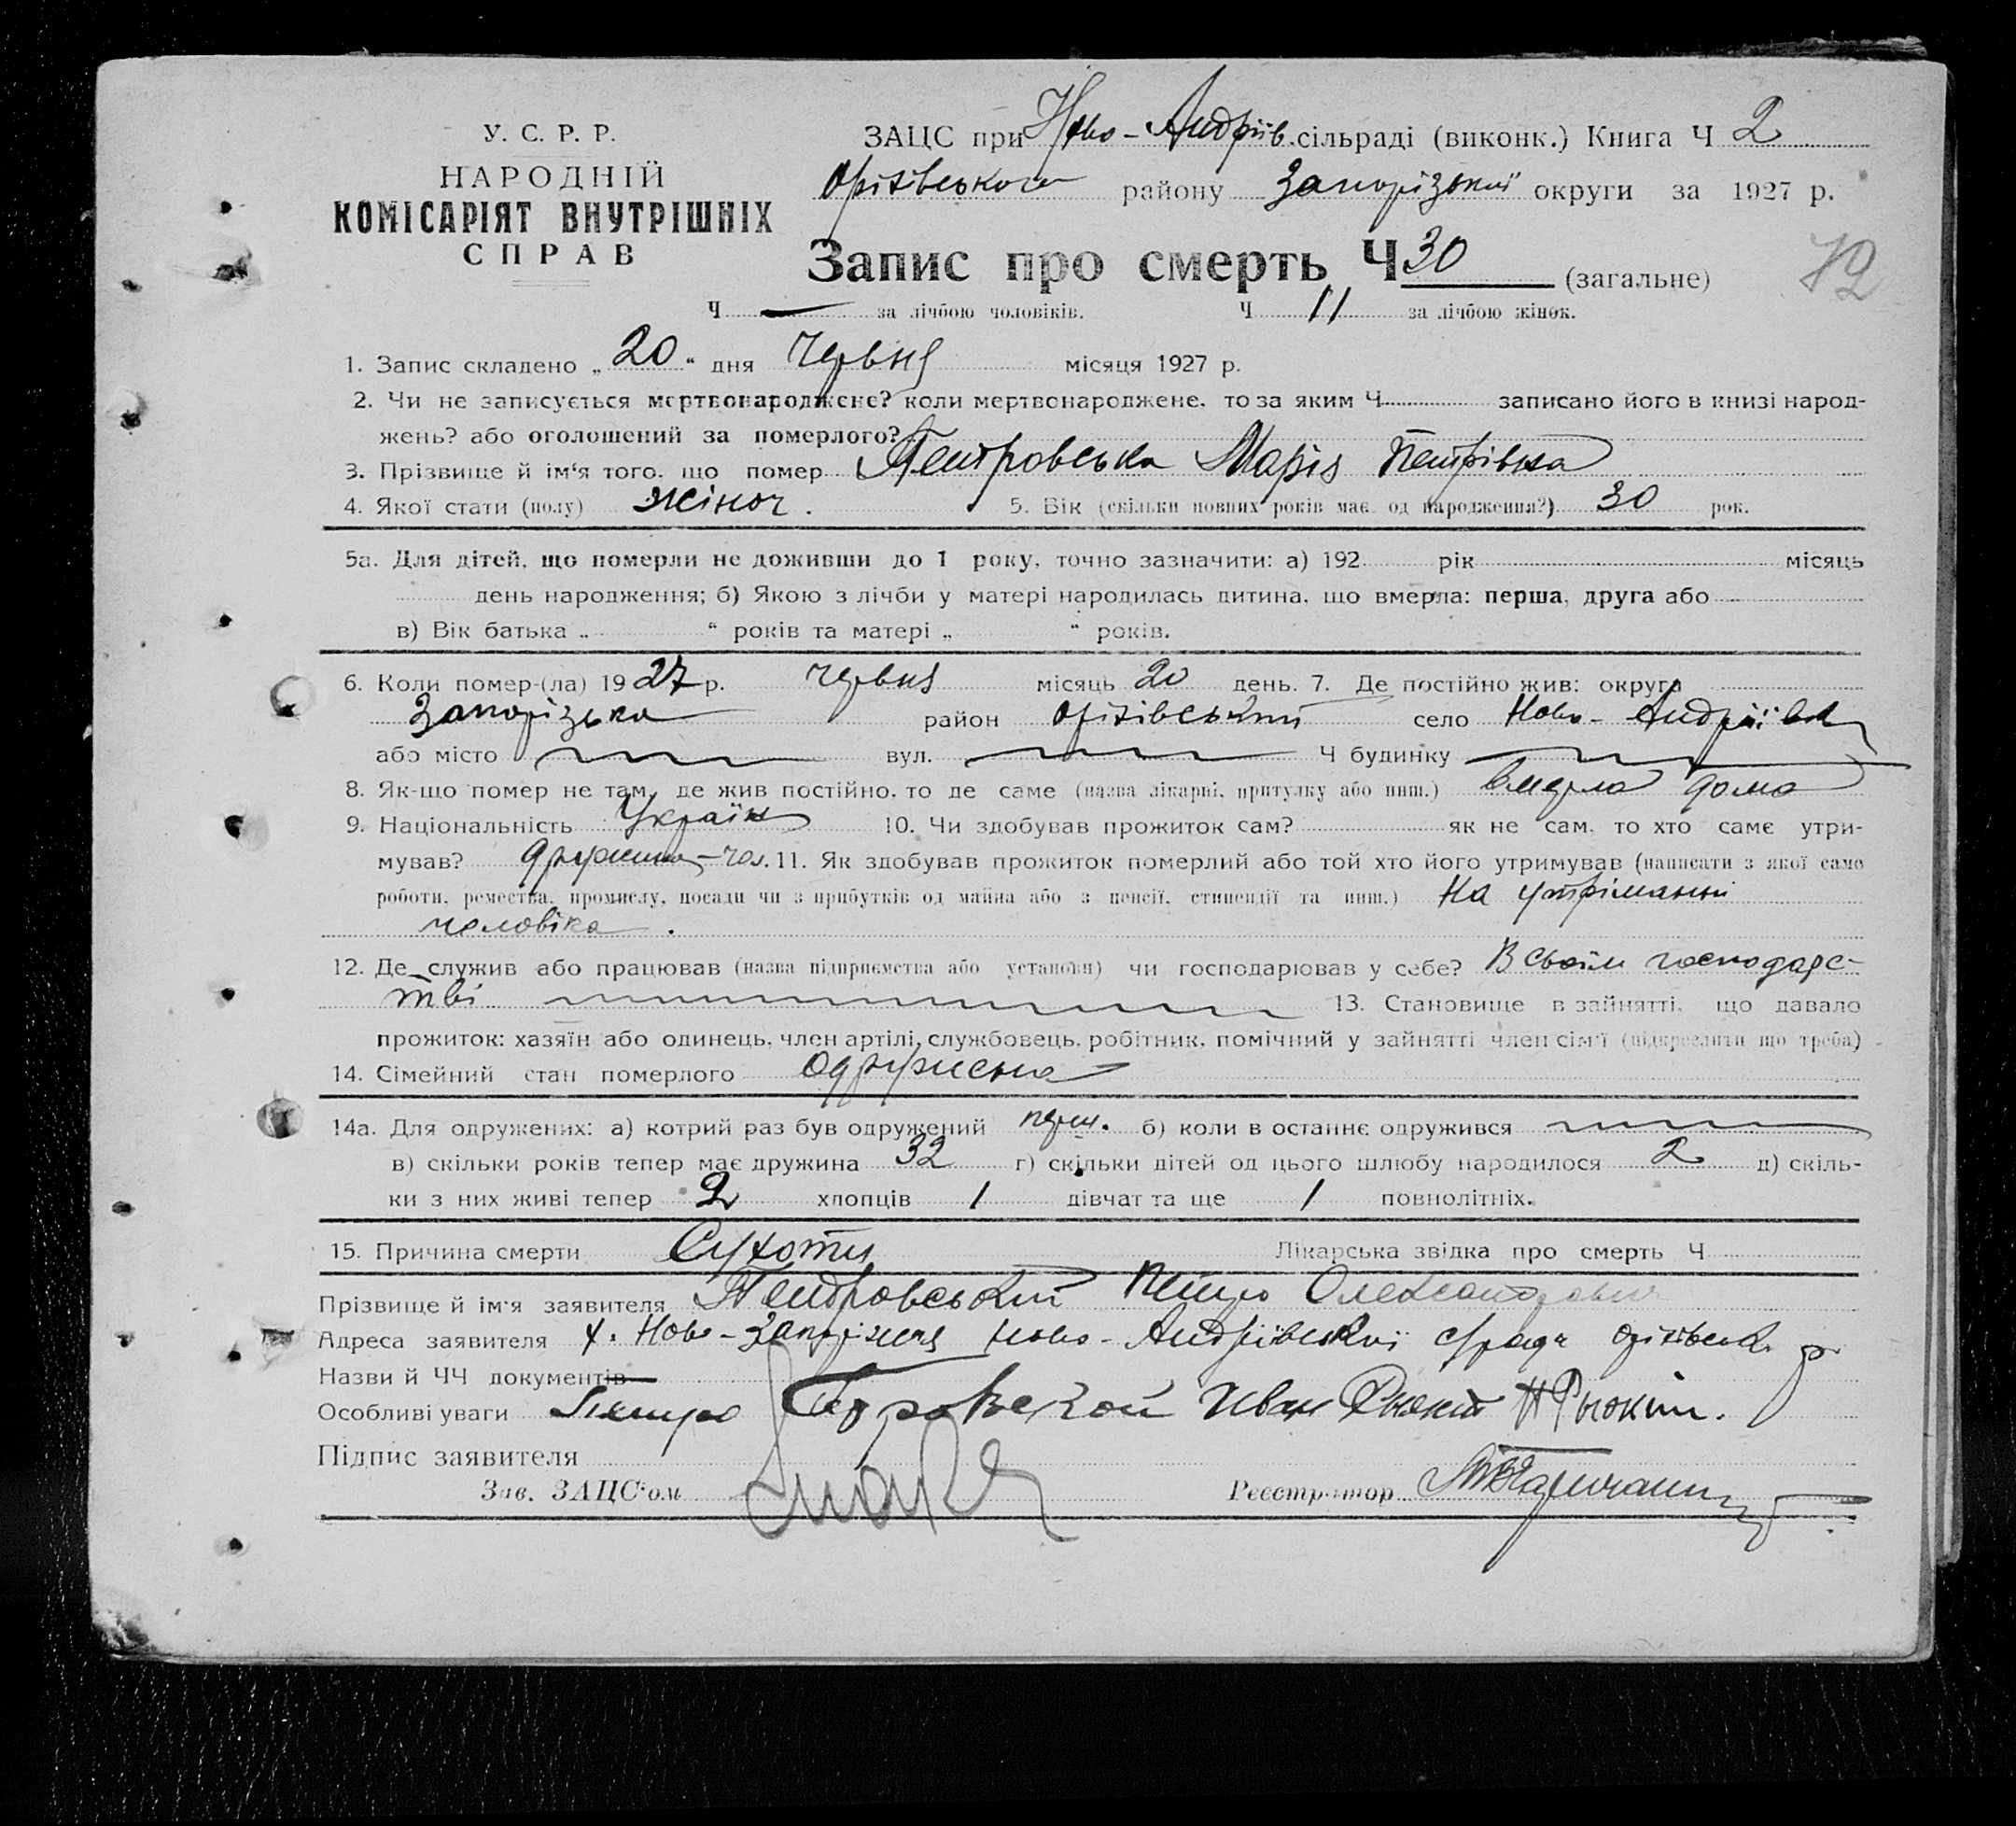 У. С. Р. Р.
НАРОДНІЙ
КОМІСАРІЯТ ВНУТРІШНІХ
СПРАВ
ЗАЦС при Ново-Андріїв. сільраді (виконк.) Книга Ч 2
Оріхівського району Запорізької округи за 1927 р.
Запис про смерть Ч 30 (загальне)
72
Ч — за лічбою чоловіків. Ч 11 за лічбою жінок.
1. Запис складено „20“ дня червня місяця 1927 р.
2. Чи не записується мертвонароджене? коли мертвонароджене, то за яким Ч записано його в книзі народ-
жень? або оголошений за померлого?
3. Прізвище й ім'я того, що помер Петровська Марія Петрівна
4. Якої стати (полу) жіноч. 5. Вік (скільки повних років має од народження?) 30 рок.
5а. Для дітей, що померли не доживши до 1 року, точно зазначити: а) 192 рік місяць
день народження; б) Якою з лічби у матері народилась дитина, що вмерла: перша, друга або
в) Вік батька „ “ років та матері „ “ років.
6. Коли помер-(ла) 1927 р. червня місяць 20 день. 7. Де постійно жив: округа
Запорізька район Оріхівський село Ново-Андріївка
або місто вул. Ч будинку
8. Як-що помер не там, де жив постійно, то де саме (назва лікарні, притулку або инш.) вмерла дома
9. Національність Україн 10. Чи здобував прожиток сам? як не сам, то хто саме утри-
мував? дружина-чол. 11. Як здобував прожиток померлий або той хто його утримував (написати з якої само
роботи, ремества, промислу, посади чи з прибутків од майна або з пенсії, стипендії та инш.) На утріманні
чоловіка.
12. Де служив або працював (назва підприємства або установи) чи господарював у себе? В своїм господарс-
тві 13. Становище в зайнятті, що давало
прожиток: хазяїн або одинець, член артілі, службовець, робітник, помічний у зайнятті член сім'ї (підкреслити що треба)
14. Сімейний стан померлого Одружена
14а. Для одружених: а) котрий раз був одружений перш. б) коли в останнє одружився
в) скільки років тепер має дружина 32 г) скільки дітей од цього шлюбу народилося 2 д) скіль-
ки з них живі тепер 2 хлопців 1 дівчат та ще 1 повнолітніх.
15. Причина смерти Сухоти Лікарська звідка про смерть Ч
Прізвище й ім'я заявителя Петровський Петро Олександрович
Адреса заявителя х. Ново-Запоріжжя Ново-Андріївської с/ради Оріхівськ. р.
Назви й ЧЧ документів
Особливі уваги Петро Иван
Підпис заявителя
Зав. ЗАЦС'ом Реєстратор